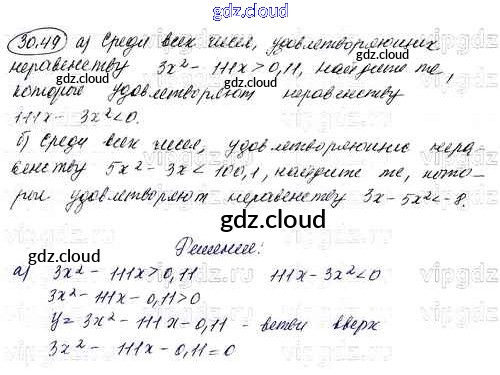 gdz.cloud
30.49 а) Среди всех чисел, удовлетворяющих
неравенству 3x² - 111x > 0,11, найдите те,
gdz.cloud gdz.cloud
которые удовлетворяют неравенству
111x - 3x² < 0.
б) Среди всех чисел, удовлетворяющих нера-
венству 5x² - 3x < 100,1, найдите те, кото-
рые удовлетворяют неравенству 3x - 5x² < -8.
gdz.cloud gdz.cloud
gdz.cloud
Решение:
а) 3x² - 111x > 0,11 111x - 3x² < 0
3x² - 111x - 0,11 > 0
y = 3x² - 111x - 0,11 - ветви вверх
3x² - 111x - 0,11 = 0